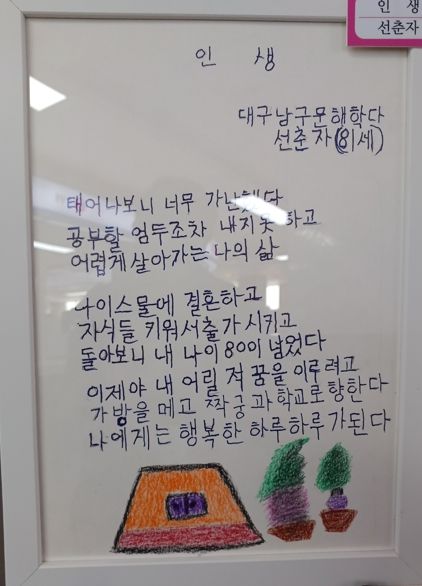 인 생
선춘자
인 생
대구남구문해학다
선춘자(81세)
태어나보니 너무 가난했다
공부할 엄두조차 내지못하고
어렵게살아가는 나의 삶
나이스물에 결혼하고
자식들 키워서출가시키고
돌아보니 내 나이80이 넘었다
이제야 내 어릴 적 꿈을 이루려고
가방을 메고 짝궁과학교로향한다
나에게는 행복한 하루하루가된다